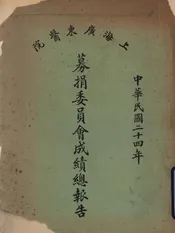 上海廣東醫院
中華民國二十四年
募捐委員會成績總報告